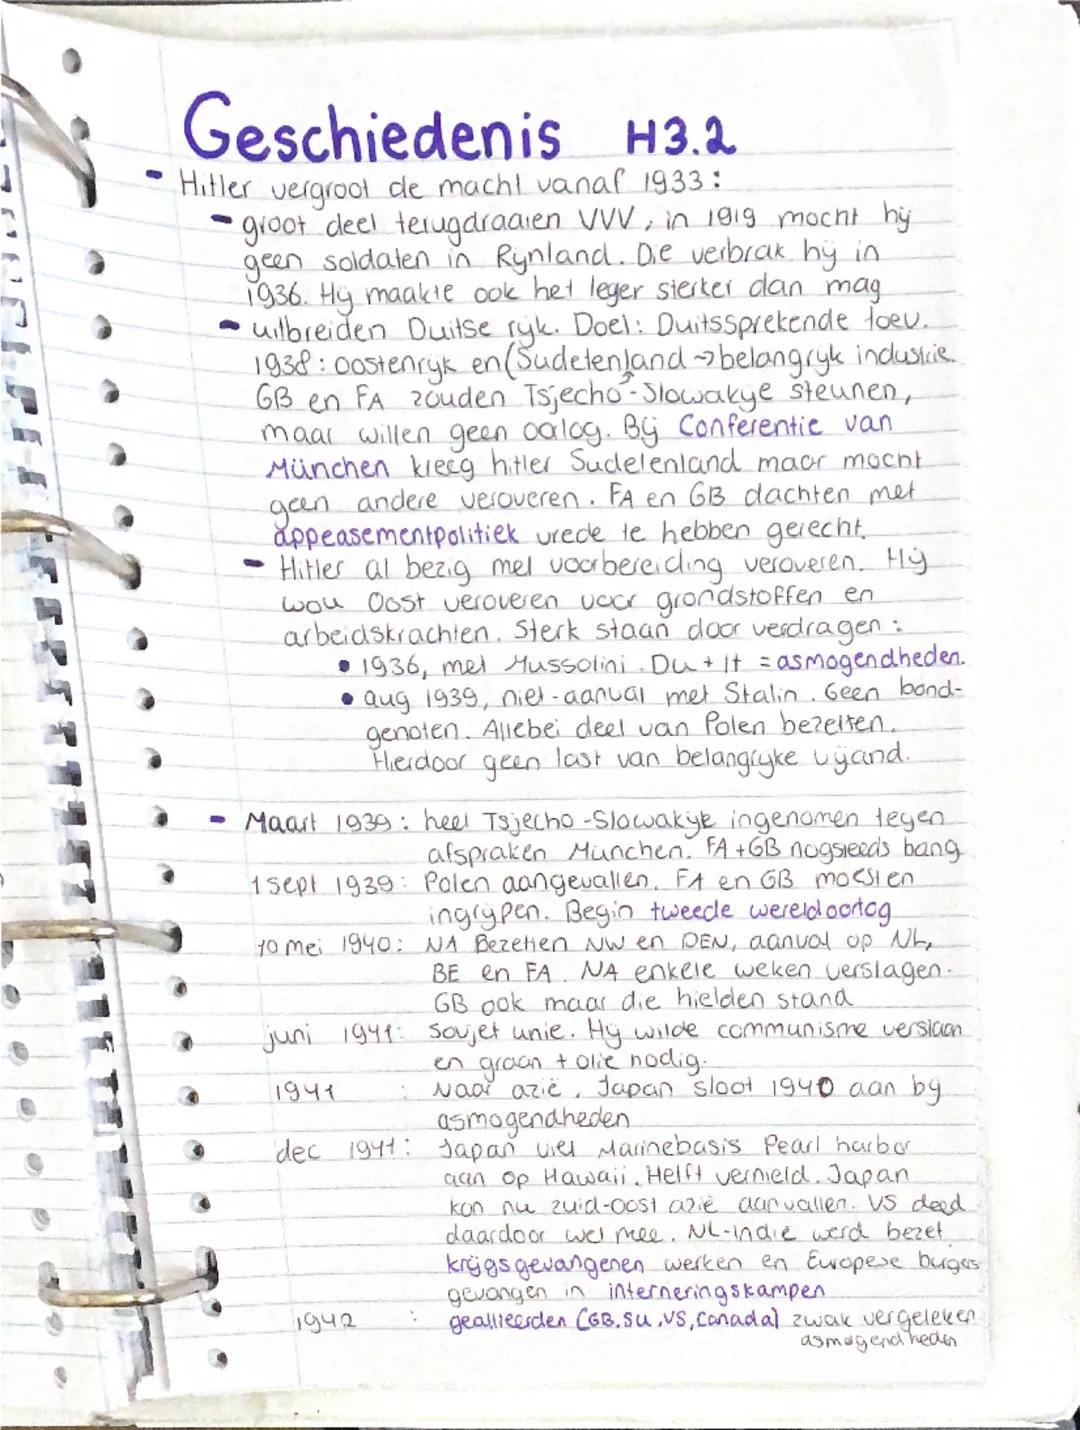 Geschiedenis H3.2
- Hitler vergroot de macht vanaf 1933:
- groot deel terugdraaien VVV, in 1919 mocht hij
geen soldaten in Rijnland. Die verbrak hij in
1936. Hij maakte ook het leger sterker dan mag
- uitbreiden Duitse rijk. Doel: Duitssprekende toev.
1938: oostenrijk en (Sudetenland → belangrijk industrie.
GB en FA zouden Tsjecho-Slowakije steunen,
maar willen geen oorlog. Bij Conferentie van
München kreeg hitler Sudetenland maar mocht
geen andere veroveren. FA en GB dachten met
appeasementpolitiek vrede te hebben gerecht.
- Hitler al bezig met voorbereiding veroveren. Hij
wou Oost veroveren voor grondstoffen en
arbeidskrachten. Sterk staan door verdragen:
• 1936, met Mussolini. Du + It = asmogendheden.
• aug 1939, niet-aanval met Stalin. Geen bond-
genoten. Allebei deel van Polen bezetten.
Hierdoor geen last van belangrijke vijand.
- Maart 1939: heel Tsjecho-Slowakije ingenomen tegen
afspraken Munchen. FA+GB nogsteeds bang
1 sept 1939: Polen aangevallen. FA en GB moesten
ingrijpen. Begin tweede wereldoorlog
10 mei 1940: NA Bezetten NW en DEN, aanval op NL,
BE en FA. NA enkele weken verslagen.
GB ook maar die hielden stand
juni 1941: Sovjet unie. Hij wilde communisme verslaan
en graan + olie nodig.
1941 : Naar azië. Japan sloot 1940 aan bij
asmogendheden
dec 1941: Japan viel Marinebasis Pearl harbor
aan op Hawaii. Helft vernield. Japan
kon nu zuid-oost azië aanvallen. VS deed
daardoor wel mee. NL-indië werd bezet
krijgsgevangenen werken en Europese burgers
gevangen in interneringskampen
1942 : geallieerden (GB, SU, VS, Canada) zwak vergeleken
asmogendheden